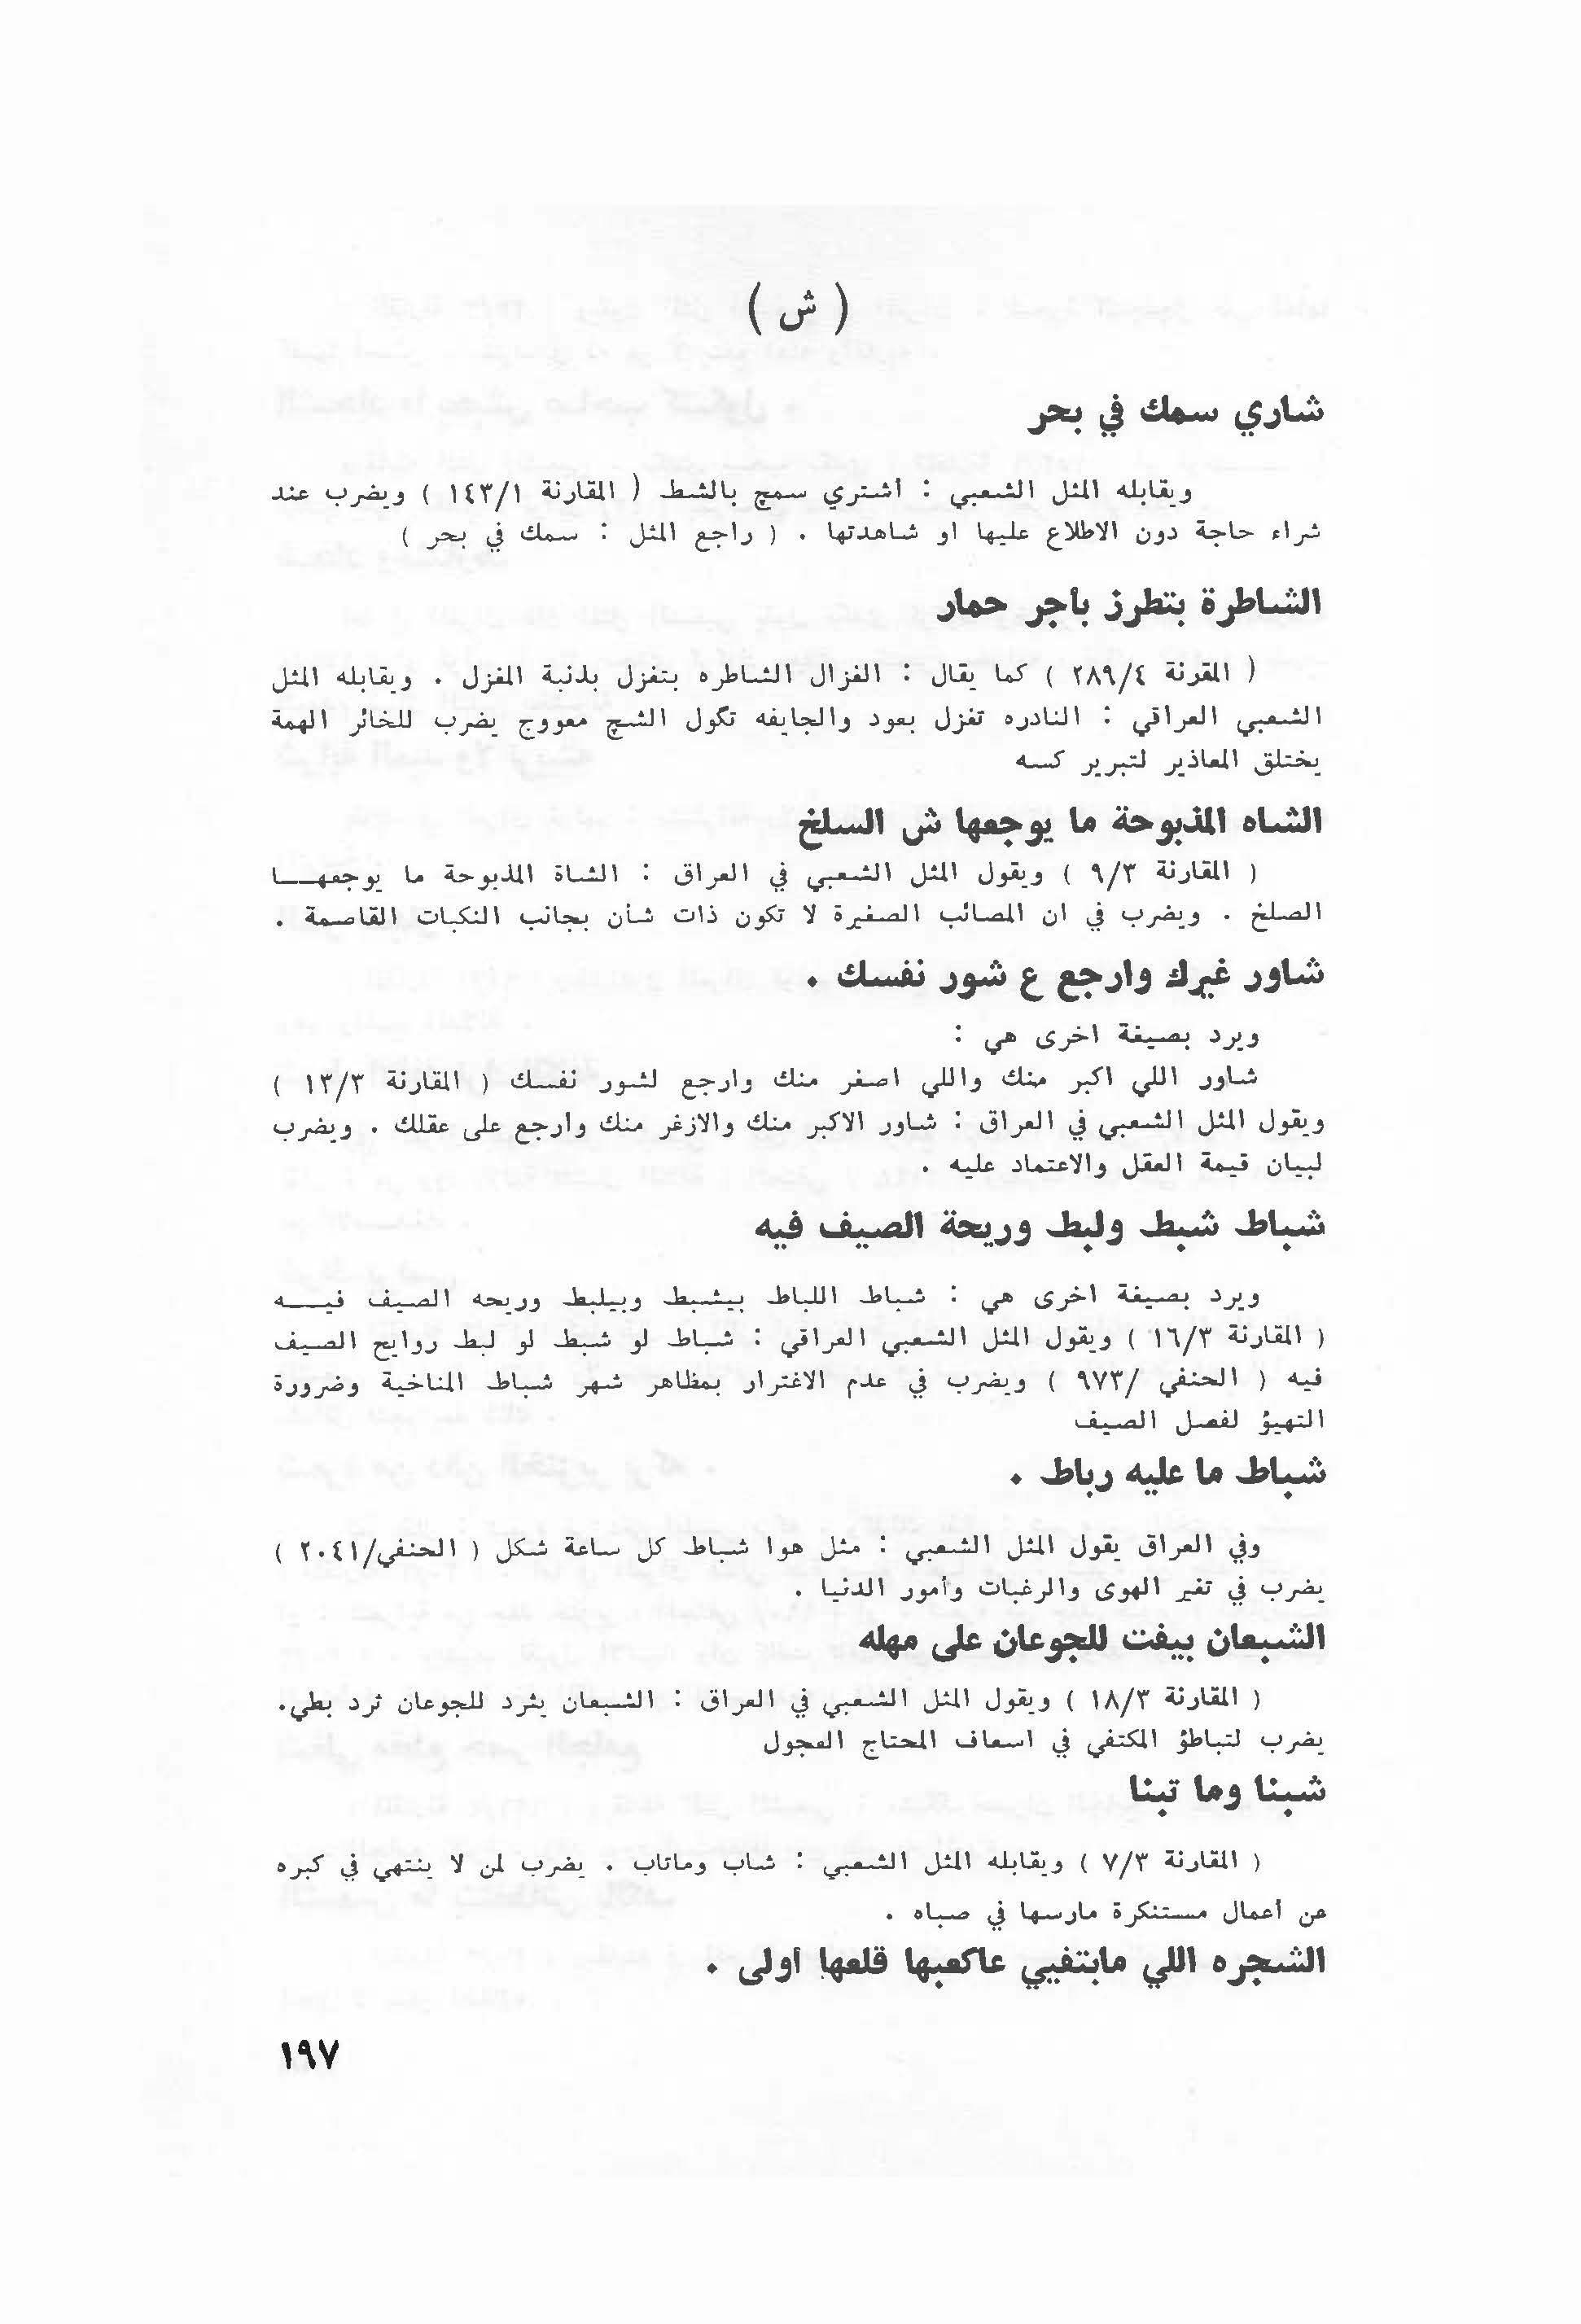 ( ش )
شاري سمك في بحر
ويقابله المثل الشعبي : أشتري سمچ بالشط ( المقارنة ١٤٣/١ ) ويضرب عند
شراء حاجة دون الاطلاع عليها او شاهدتها . ( راجع المثل : سمك في بحر )
الشاطرة بتطرز بأجر حمار
( المقرنة ٢٨٩/٤ ) كما يقال : الغزال الشاطره بتغزل بذنبة المغزل . ويقابله المثل
الشعبي العراقي : النادره تغزل بعود والجايفه تگول الشچ معووج يضرب للخائر الهمة
يختلق المعاذير لتبرير كسه
الشاه المذبوحة ما يوجعها ش السلخ
( المقارنة ٩/٣ ) ويقول المثل الشعبي في العراق : الشاة المذبوحة ما يوجعهـــا
الصلخ . ويضرب في ان المصائب الصغيرة لا تكون ذات شأن بجانب النكبات القاصمة .
شاور غيرك وارجع ع شور نفسك .
ويرد بصيغة اخرى هي :
شاور اللي اكبر منك واللي اصغر منك وارجع لشور نفسك ( المقارنة ١٣/٣ )
ويقول المثل الشعبي في العراق : شاور الاكبر منك والازغر منك وارجع على عقلك . ويضرب
لبيان قيمة العقل والاعتماد عليه .
شباط شبط ولبط وريحة الصيف فيه
ويرد بصيغة اخرى هي : شباط اللباط بيشبط وبيلبط وريحه الصيف فيـــه
( المقارنة ١٦/٣ ) ويقول المثل الشعبي العراقي : شباط لو شبط لو لبط روايح الصيف
فيه ( الحنفي /٩٧٣ ) ويضرب في عدم الاغترار بمظاهر شهر شباط المناخية وضرورة
التهيؤ لفصل الصيف
شباط ما عليه رباط .
وفي العراق يقول المثل الشعبي : مثل هوا شباط كل ساعة شكل ( الحنفي/٢٠٤١ )
يضرب في تغير الهوى والرغبات وأمور الدنيا .
الشبعان بيفت للجوعان على مهله
( المقارنة ١٨/٣ ) ويقول المثل الشعبي في العراق : الشبعان يثرد للجوعان ثرد بطي.
يضرب لتباطؤ المكتفي في اسعاف المحتاج العجول
شبنا وما تبنا
( المقارنة ٧/٣ ) ويقابله المثل الشعبي : شاب وماتاب . يضرب لمن لا ينتهي في كبره
عن أعمال مستنكرة مارسها في صباه .
الشجره اللي مابتفيي عاكعبها قلعها أولى .
١٩٧